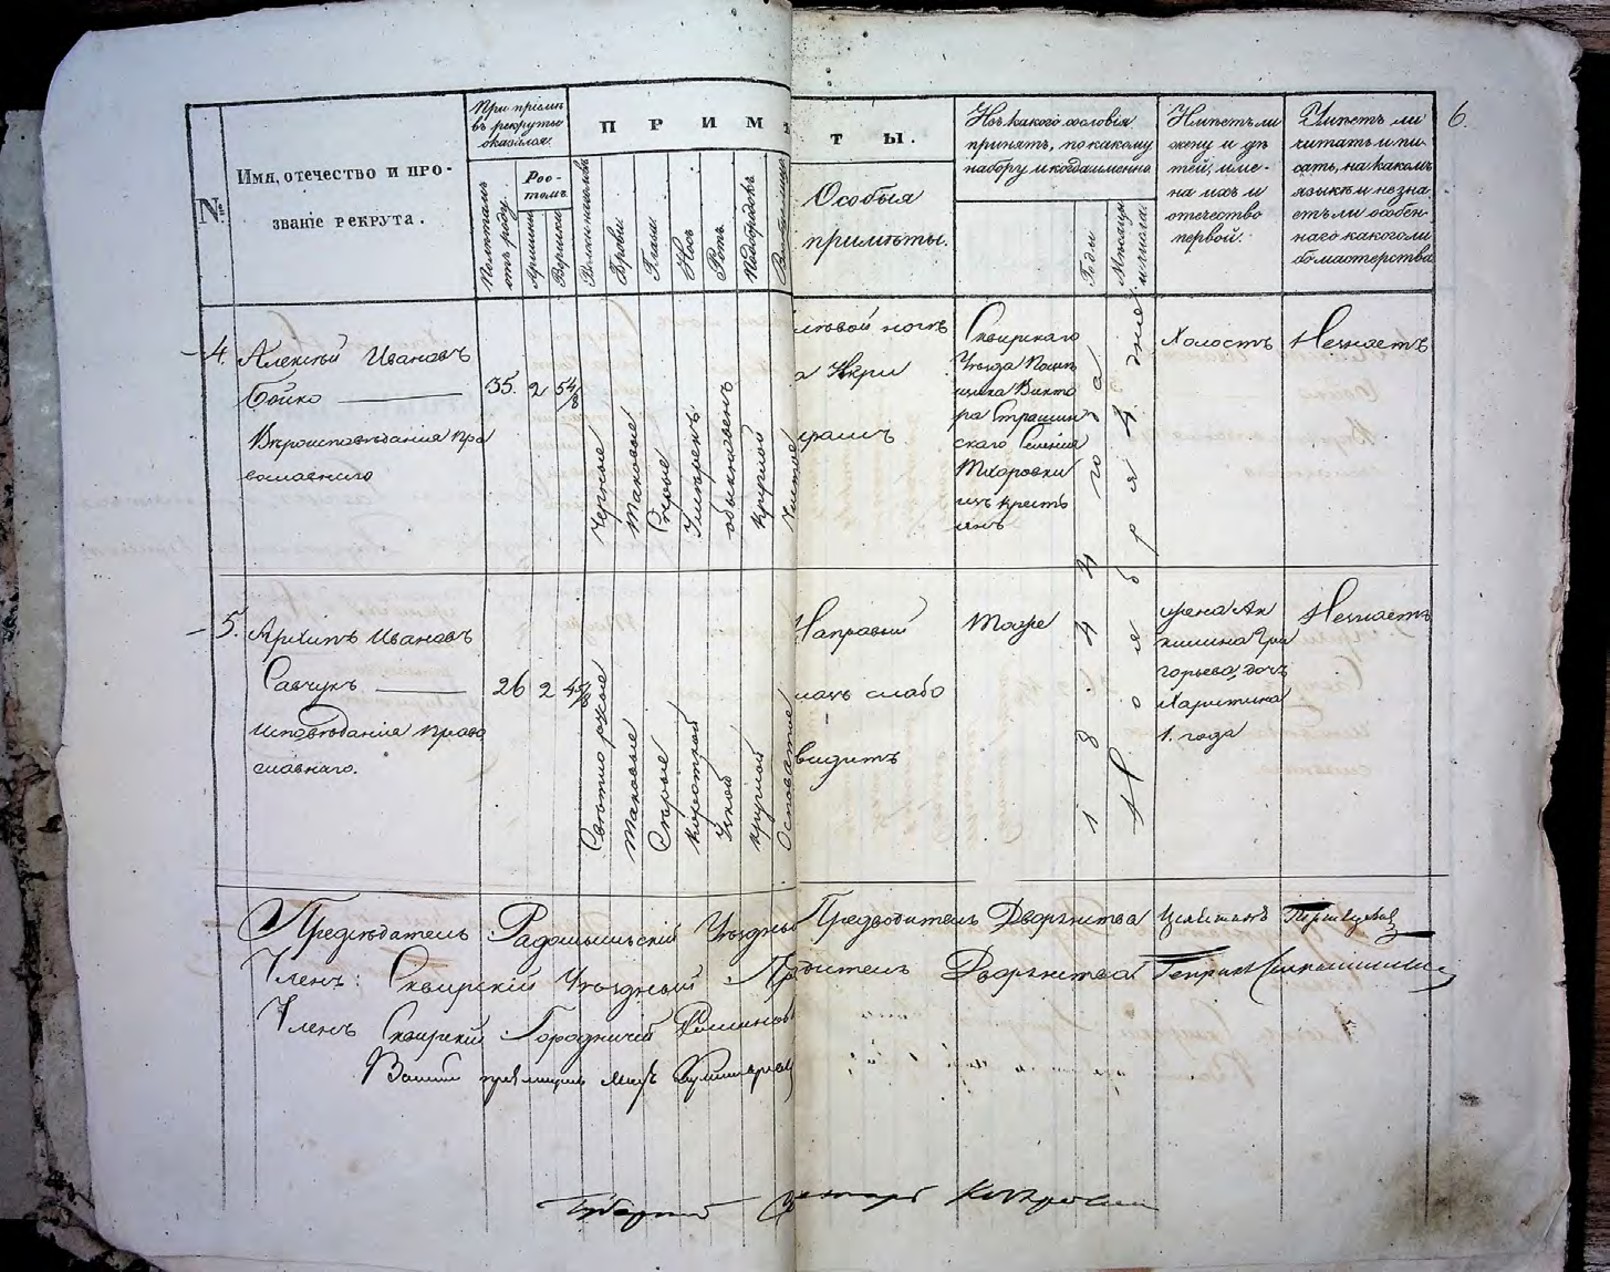 6.
№
Имя, отечество и про-
званіе рекрута.
При пріемѣ
въ рекруты
оказалось.
Полнталѣтъ
отъ роду.
Рос-
томъ
Аршины
Вершки
ПРИМѢТЫ.
Брови
Глаза
Носъ
Ротъ
Подбородокъ
Особыя
примѣты.
Изъ какого сословія
принятъ, по какому
набору и когда именно
Годы
Мѣсяцы
и числа.
Имѣетъ ли
жену и дѣ
тей, име-
на ихъ и
отечество
первой.
Умѣетъ ли
читать и пи-
сать, на какомъ
языкѣ и не зна
етъ ли особен-
наго какого ли
бо мастерства
4.
Алексѣй Ивановъ
Бойко
Вѣроисповѣданія пра
вославнаго
35.
2
5 4/8
Черные
Таковые
Сѣрые
Умѣренъ
обыкновенъ
круглой
Чистое
лѣвой ногѣ
Сквирскаго
Уѣзда Помѣ
щика Викто
ра Страшин
скаго Селенія
Тхоровки
изъ кресть
янъ
1844 года
Ноября 4 дня
Холостъ
Незнаетъ
5.
Архипъ Ивановъ
Савчукъ
исповѣданія право
славнаго.
26
2
4 5/8
Свѣтло русые
Таковые
Сѣрые
короткой
Узкой
круглой
Осповатое
На правый
глазъ слабо
видитъ
Тоже
жена Ак
килина Гри
горьева, дочь
Харитина
1. года
Незнаетъ
Предсѣдатель Радомысльскій Уѣздный Предводитель Дворянства
Членъ: Сквирскій Уѣздный Предводитель Дворянства Генрих
Членъ Сквирскій Городничій